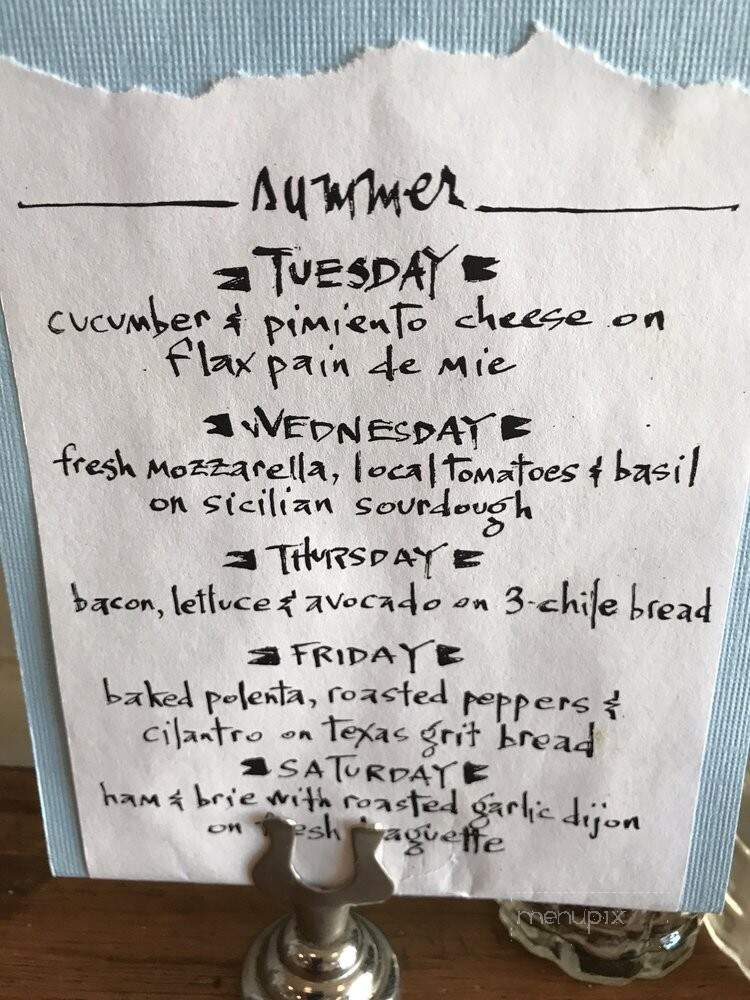 summer
TUESDAY
cucumber & pimiento cheese on
flax pain de mie
WEDNESDAY
fresh mozzarella, local tomatoes & basil
on sicilian sourdough
THURSDAY
bacon, lettuce & avocado on 3-chile bread
FRIDAY
baked polenta, roasted peppers &
cilantro on Texas grit bread
SATURDAY
ham & brie with roasted garlic dijon
on fresh baguette
menupix